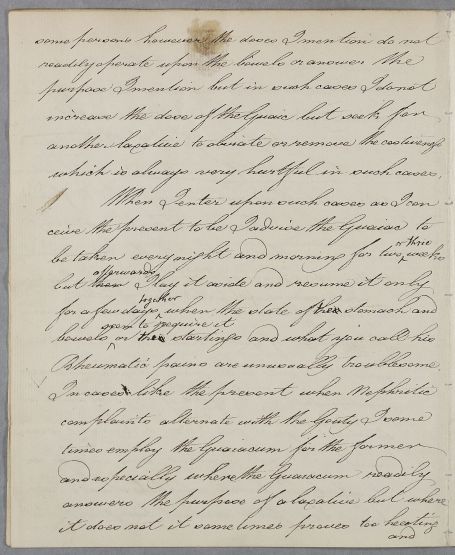 some persons however the doses I mention do not
readily operate upon the bowels or answer the
purpose I mention but in such cases I do not
increase the dose of the Guaic but seek for
another laxative to obviate or remove the costiveness
which is always very hurtful in such cases.
When I enter upon such cases as I con
ceive the present to be I advise the Guaiac to
or three
be taken every night and morning for two weeks
afterwards
but then I lay it aside and resume it only
together
for a few days when the state of the stomach and
seem to require it
bowels or the startings and what you call his
Rheumatic pains are unusually troublesome.
In cases like the present when Nephritic
complaints alternate with the Gouty I some
times employ the Guaiacum for the former
and especially where the Guaiacum readily
answers the purpose of a laxative but where
it does not it sometimes proves too heating
and